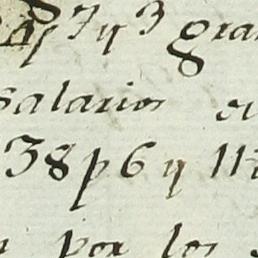 7 y 3 gra
salarios e
38 p 6 y 11
por los